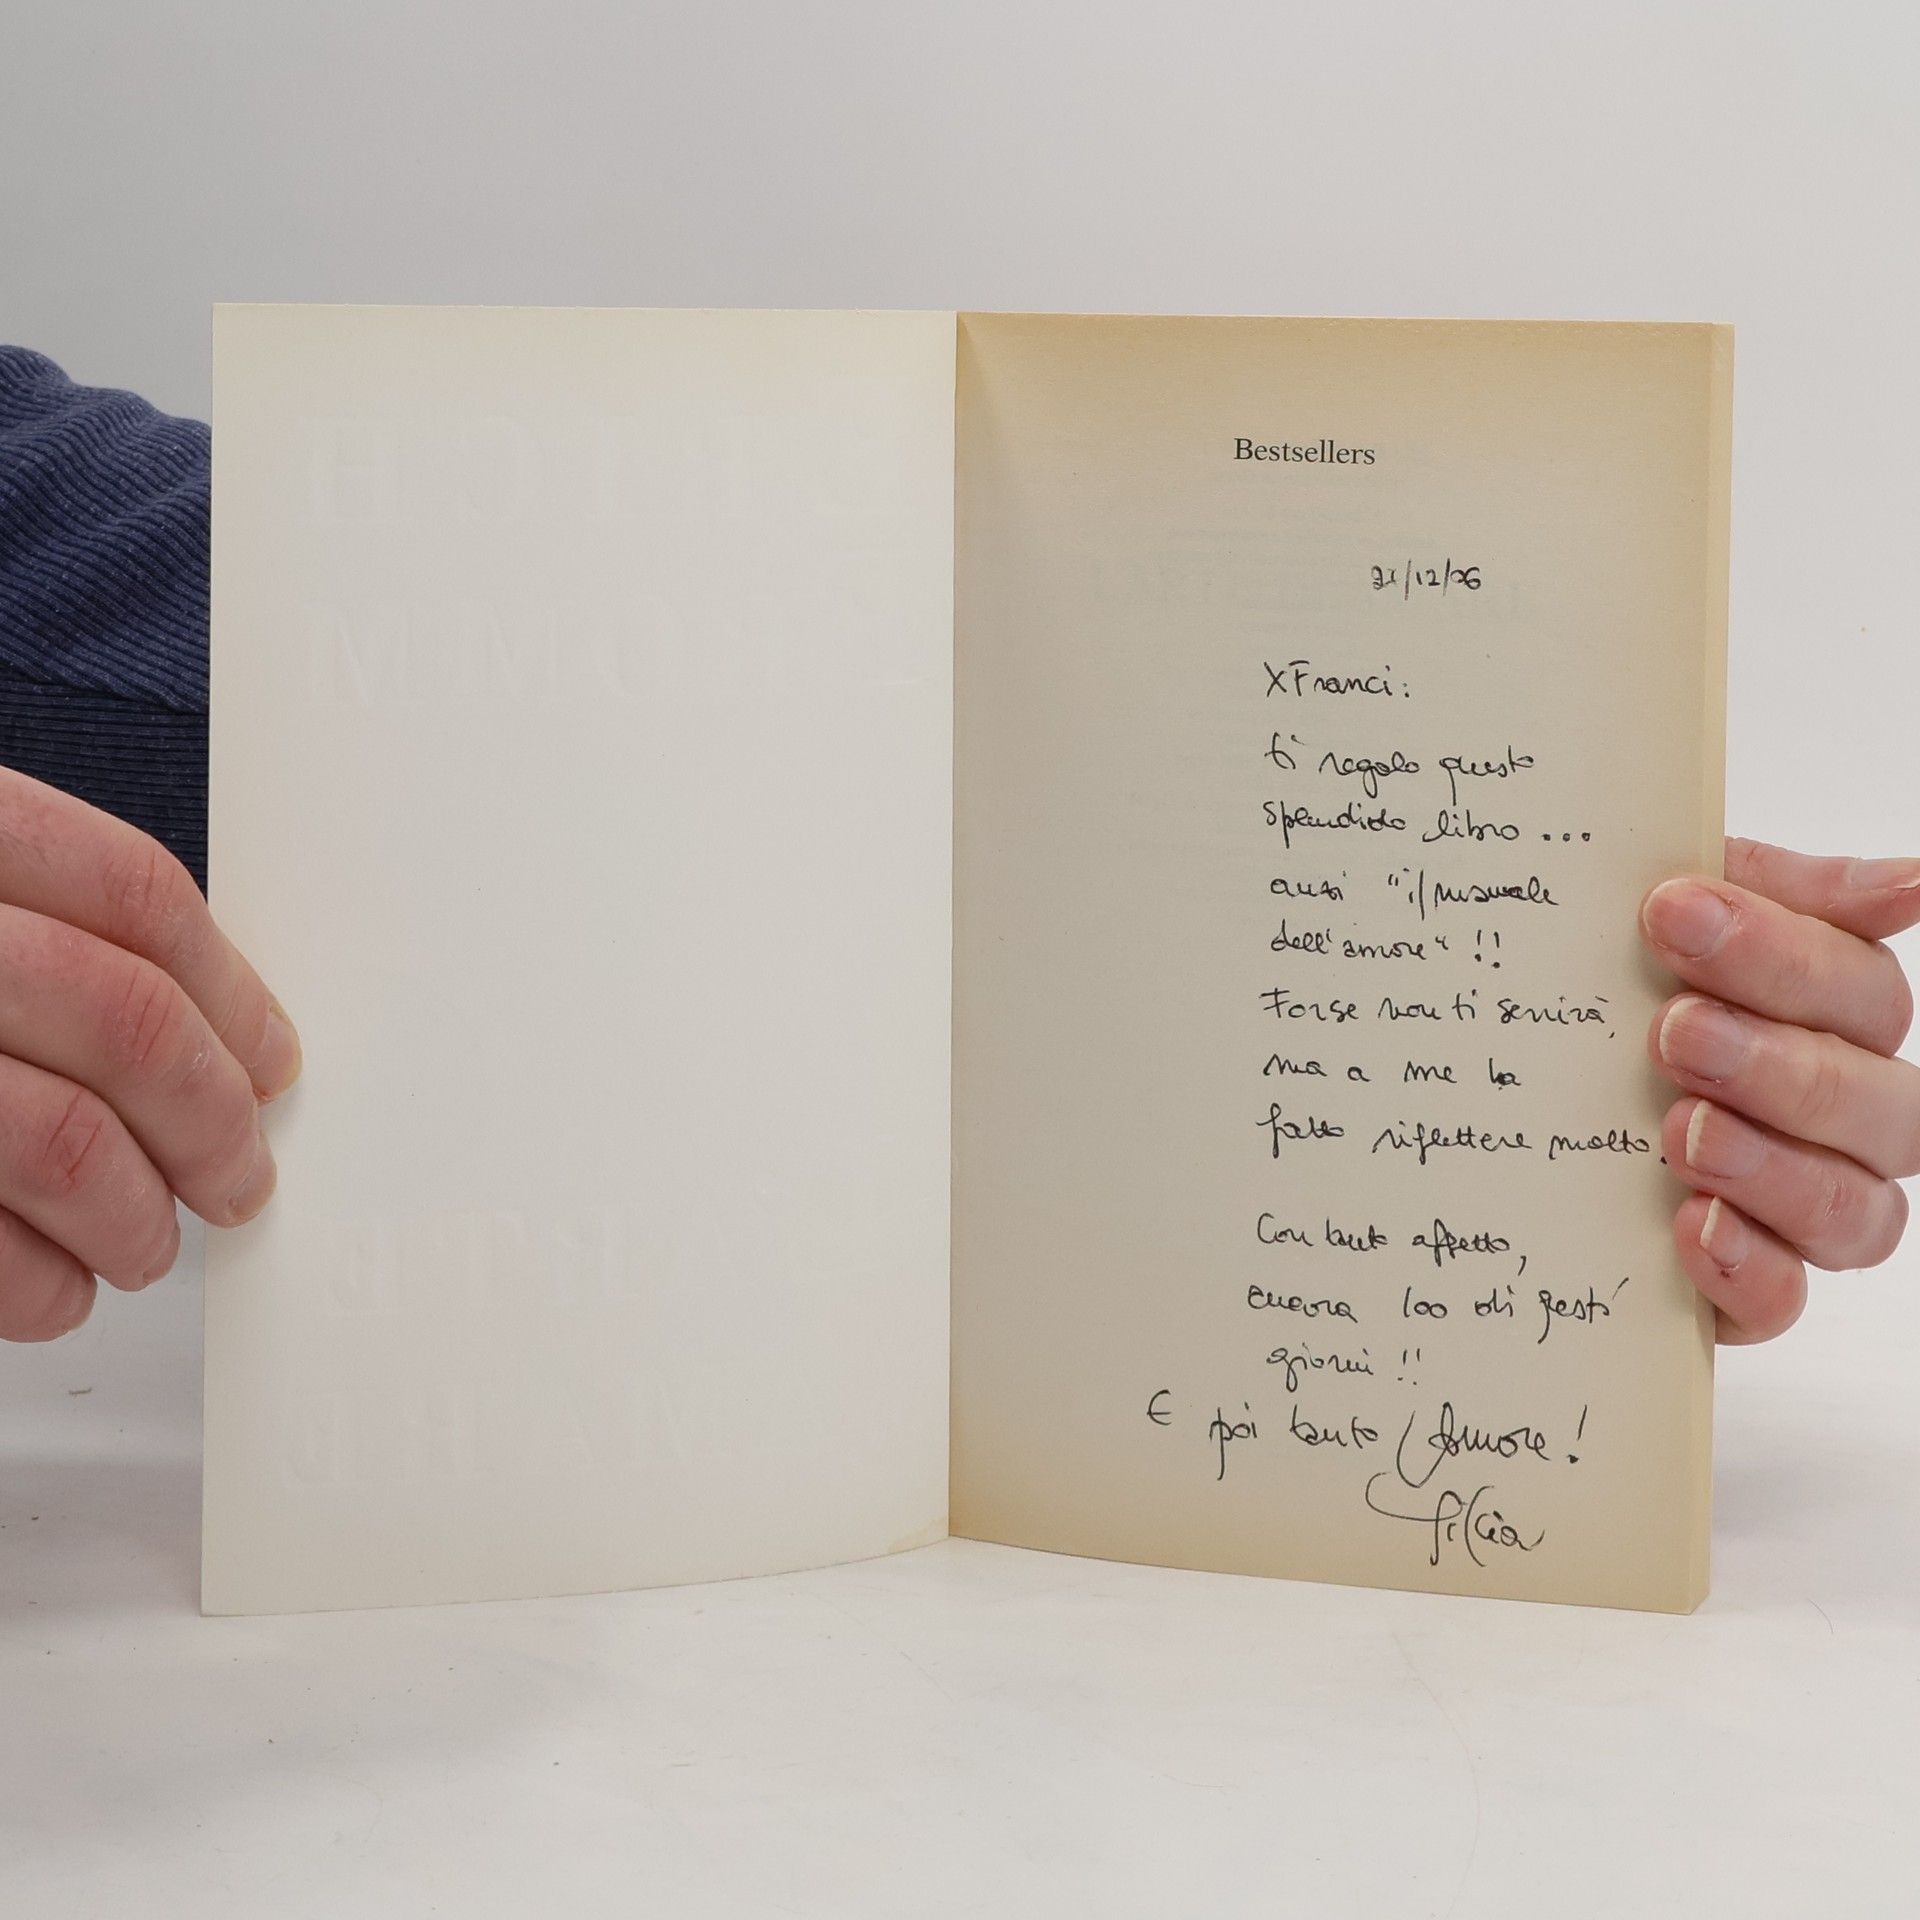 Bestsellers
21/12/06
XFranci:
ti regalo questo
splendido libro ...
anzi "il manuale
dell'amore" !!
Forse non ti servirà,
ma a me ha
fatto riflettere molto.
Con tanto affetto,
ancora 100 di questi
giorni !!
E poi tanto Amore!
Silvia